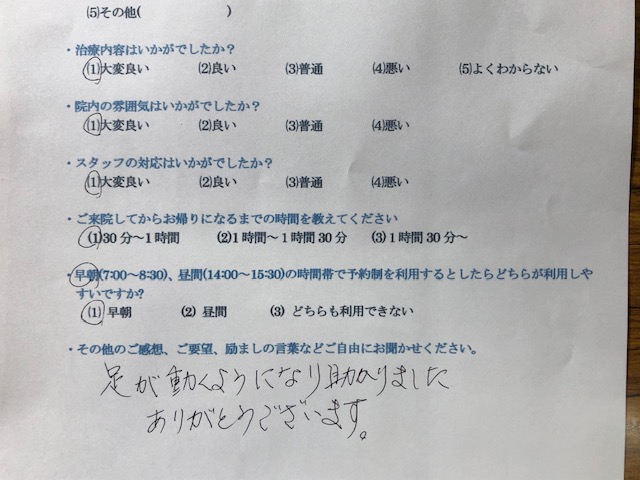 (5)その他( )
・治療内容はいかがでしたか?
(1)大変良い (2)良い (3)普通 (4)悪い (5)よくわからない
・院内の雰囲気はいかがでしたか?
(1)大変良い (2)良い (3)普通 (4)悪い
・スタッフの対応はいかがでしたか?
(1)大変良い (2)良い (3)普通 (4)悪い
・ご来院してからお帰りになるまでの時間を教えてください
(1)30分〜1時間 (2)1時間〜1時間30分 (3)1時間30分〜
・早朝(7:00〜8:30)、昼間(14:00〜15:30)の時間帯で予約制を利用するとしたらどちらが利用しや
すいですか?
(1) 早朝 (2) 昼間 (3) どちらも利用できない
・その他のご感想、ご要望、励ましの言葉などご自由にお聞かせください。
足が動くようになり助かりました
ありがとうございます。